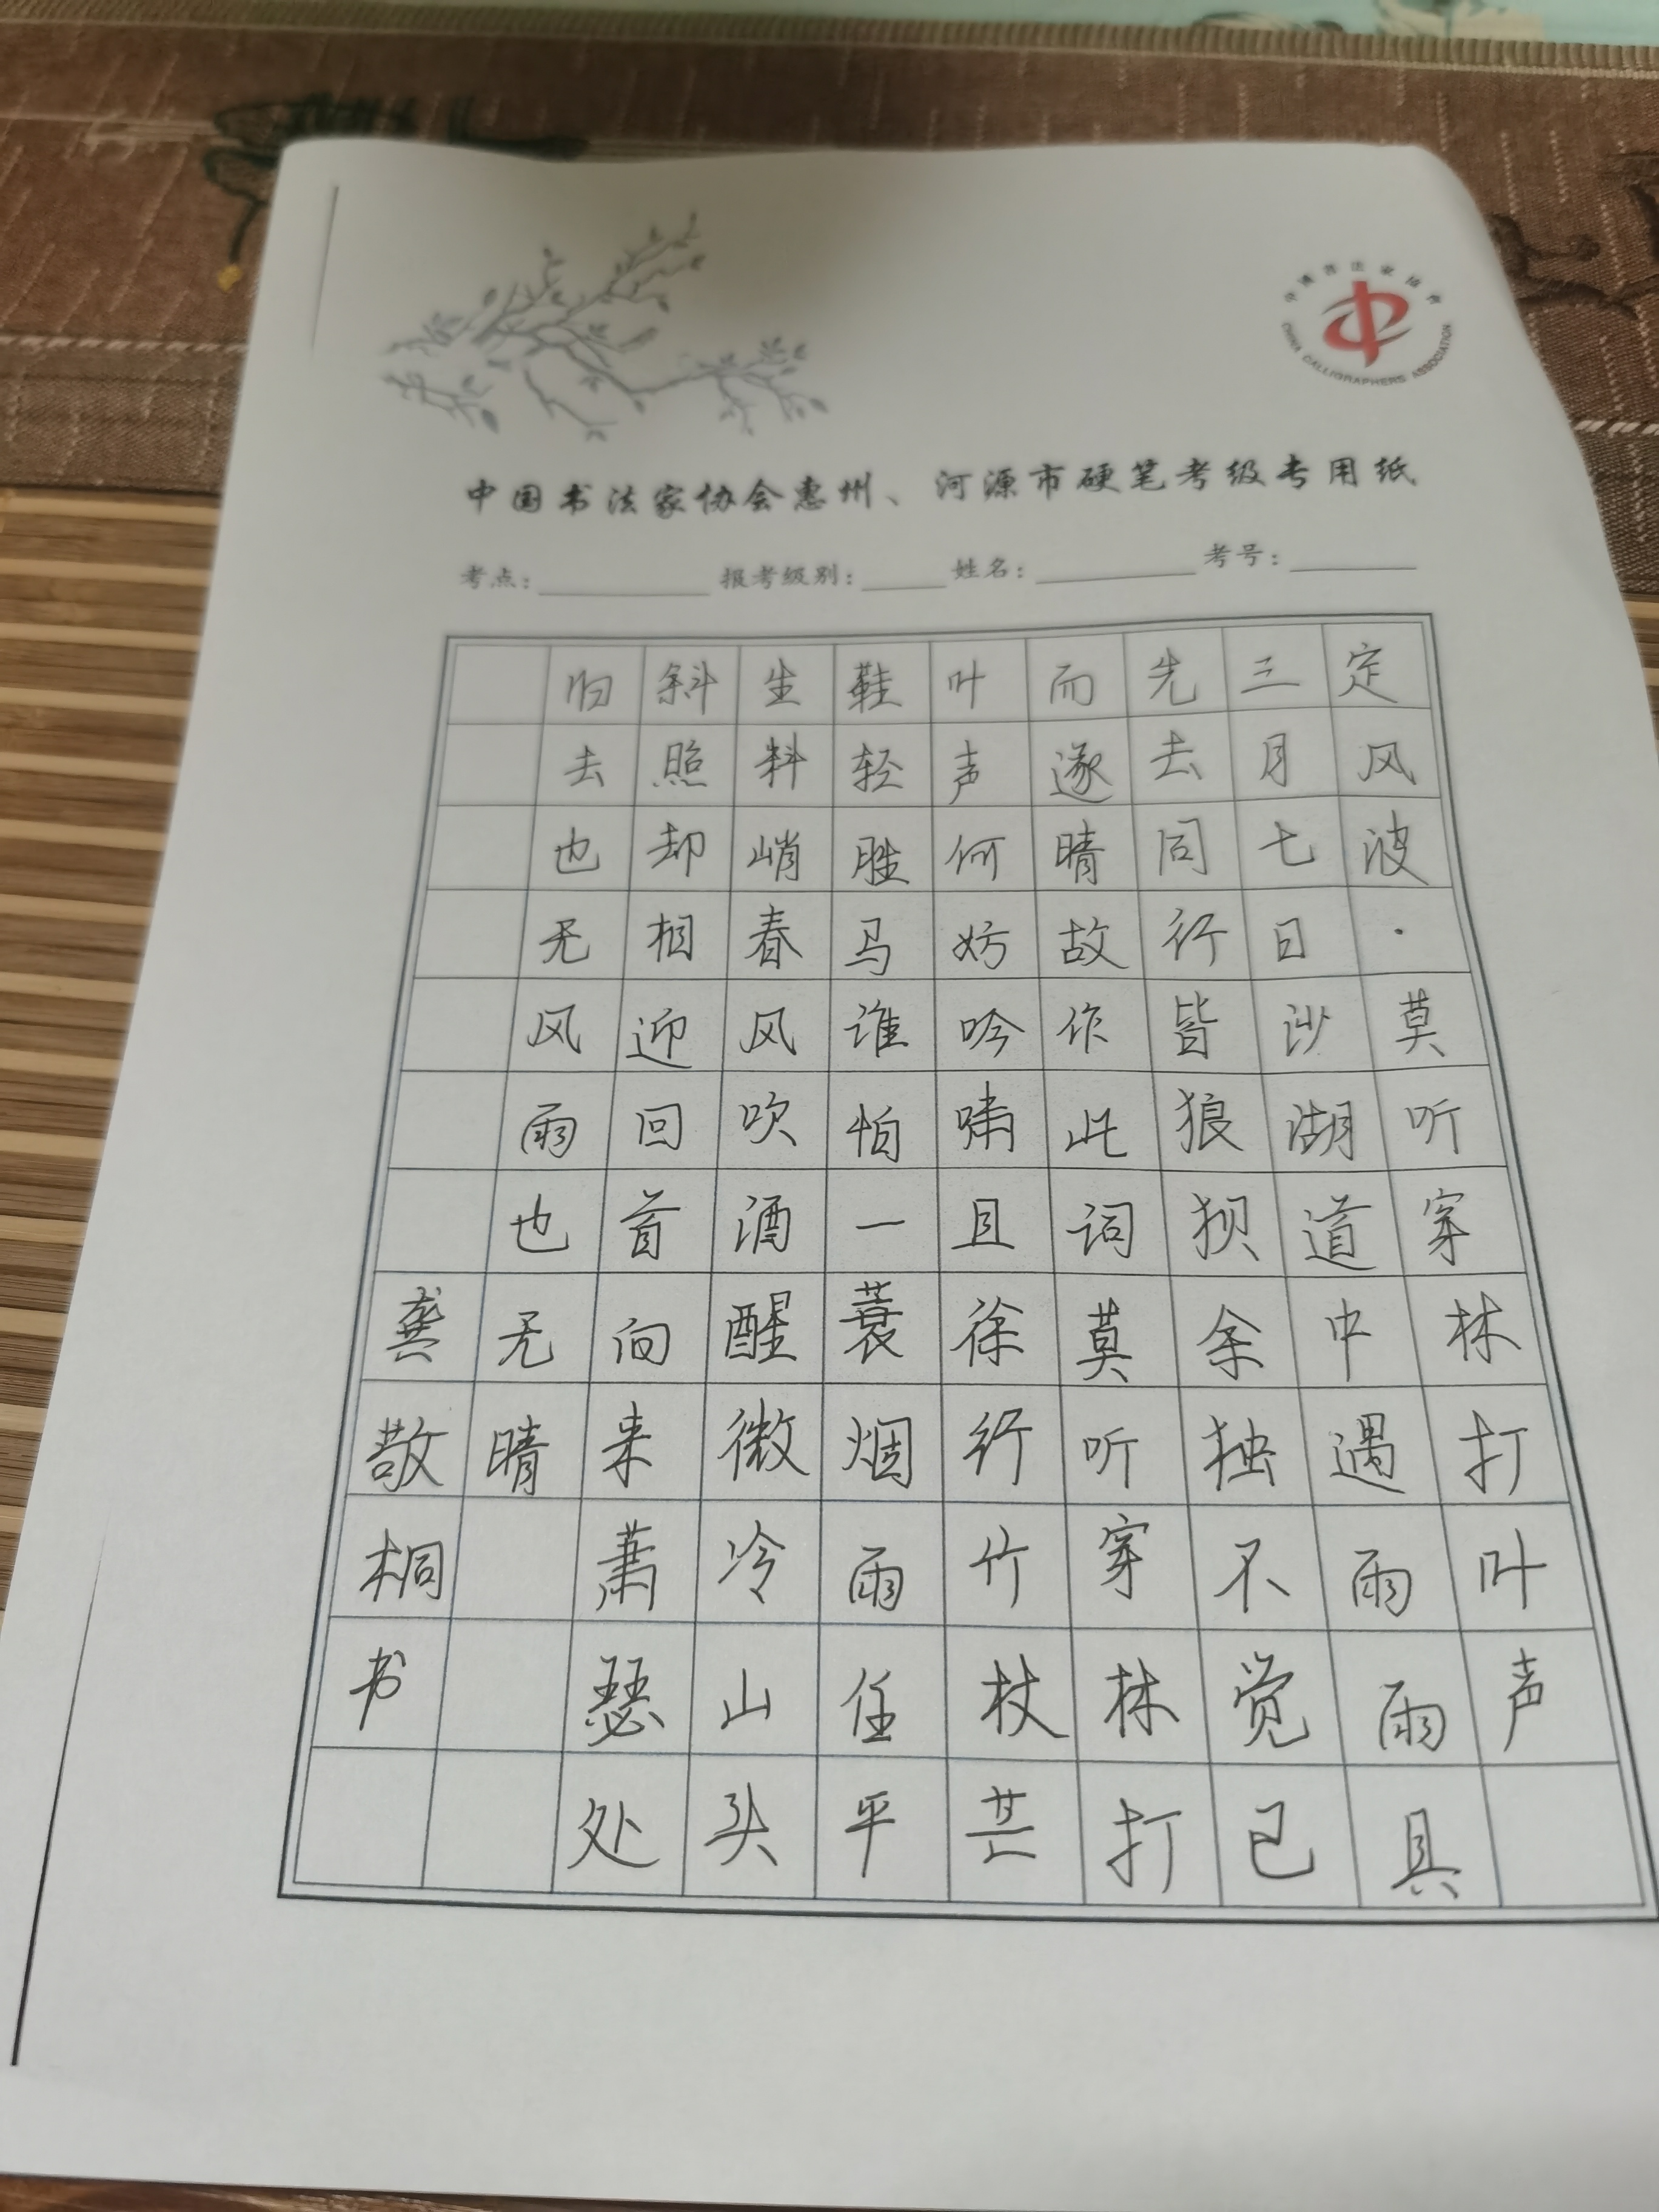 中国书法家协会
CHINA CALLIGRAPHERS ASSOCIATION
中国书法家协会惠州、河源市硬笔考级专用纸
考点： 报考级别： 姓名： 考号：
定风波·莫听穿林打叶声
三月七日沙湖道中遇雨雨具
先去同行皆狼狈余独不觉已
而遂晴故作此词莫听穿林打
叶声何妨吟啸且徐行竹杖芒
鞋轻胜马谁怕一蓑烟雨任平
生料峭春风吹酒醒微冷山头
斜照却相迎回首向来萧瑟处
归去也无风雨也无晴
龚敬桐书